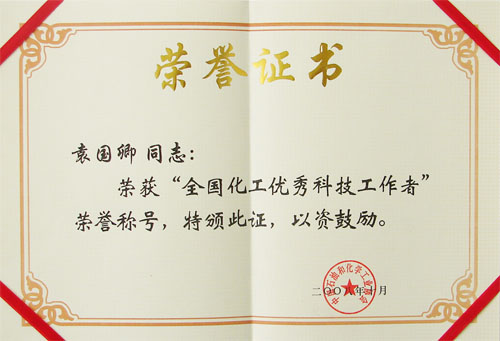 荣誉证书
袁国卿 同志：
荣获“全国化工优秀科技工作者”
荣誉称号，特颁此证，以资鼓励。
中国石油和化学工业协会
二〇〇八年十月